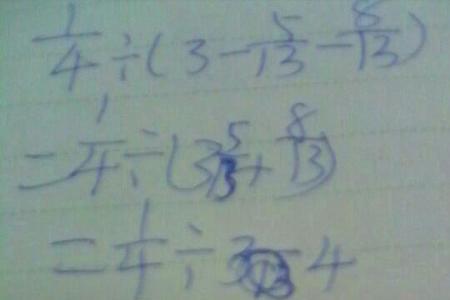 1/4 ÷ (3 - 5/13 - 8/13)
= 1/4 ÷ (3 5/13 + 8/13)
= 1/4 ÷ 4